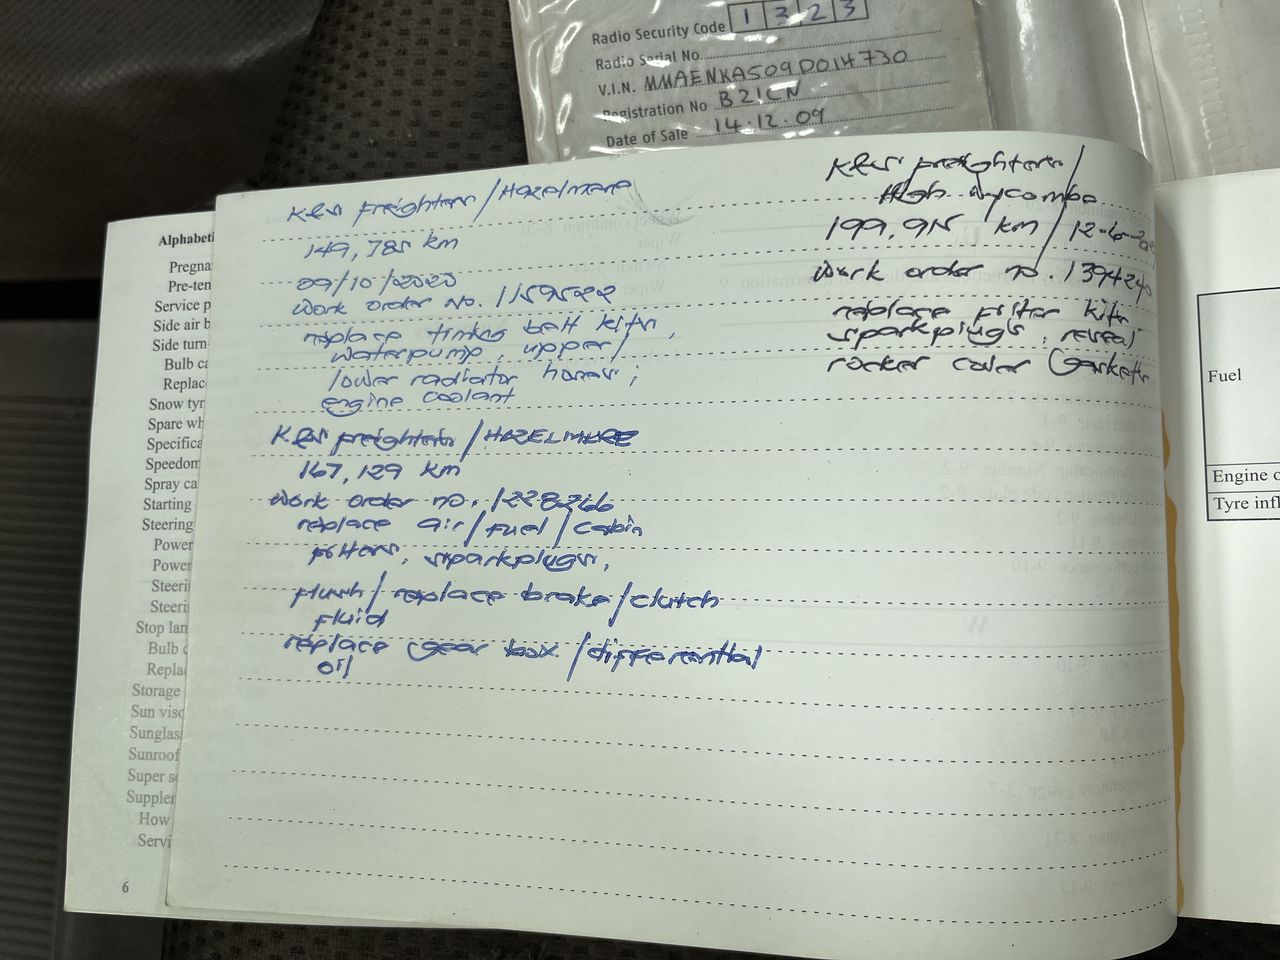 Radio Security Code 1 3 2 3
Radio Serial No
V.I.N. MMAENKA509D014730
Registration No B21CN
Date of Sale 14.12.09
K&S Freighters/Hazelmere
149,785 km
09/10/2020
Work order No. 1159522
replace timing belt kits,
waterpump, upper/
lower radiator hoses;
engine coolant
K&S freighters/HAZELMERE
167,129 km
Work order no. 1228266
replace air/fuel/cabin
filters, sparkplugs,
flush/replace brake/clutch
fluid
replace gear box/differential
oil
K&S freighters/
High Wycombe
199,915 km/12-6-
Work order no. 139424
replace filter kits
sparkplugs, reseal
rocker cover Gaskets
Alphabeti
Pregna
Pre-ten
Service p
Side air b
Side turn
Bulb ca
Replac
Snow tyr
Spare wh
Specifica
Speedom
Spray ca
Starting
Steering
Power
Power
Steeri
Steeri
Stop lan
Bulb c
Repla
Storage
Sun visc
Sunglas
Sunroof
Super s
Supplem
How
Servi
6
Fuel
Engine o
Tyre infl